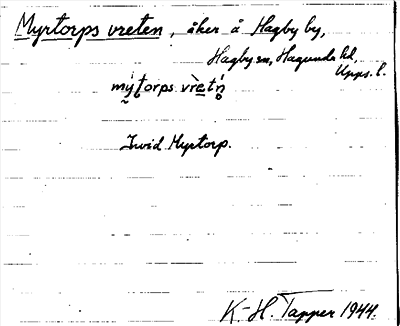 Myrtorps vreten, åker å Hagby by,
Hagby sn, Hagunda hd,
Upps. l.
mýtorps vrètņ
Invid Myrtorp.
K.-H. Tapper 1944.